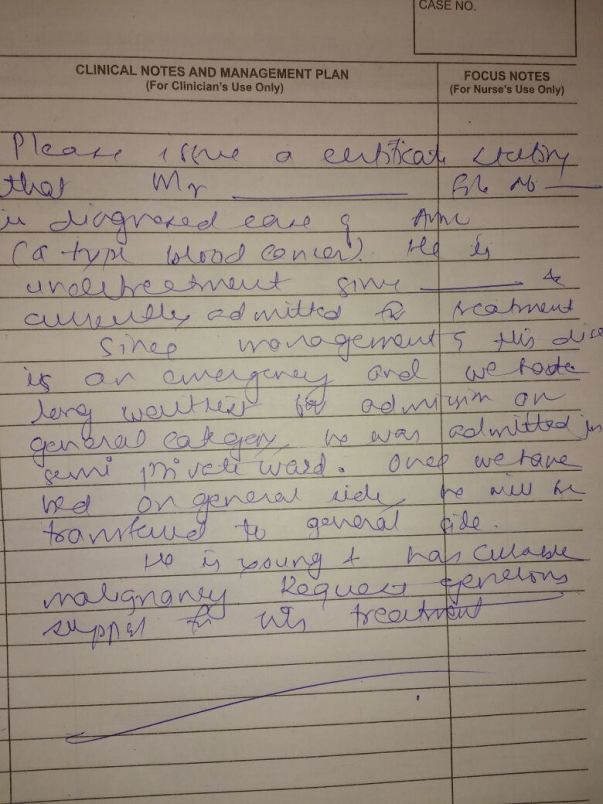 CASE NO.
CLINICAL NOTES AND MANAGEMENT PLAN
(For Clinician's Use Only)
FOCUS NOTES
(For Nurse's Use Only)
Please issue a certificate stating
that Mr ________ File No ____
is diagnosed case of AML
(a type blood cancer). He is
undertreatment since ________ &
currently admitted for treatment
Since management of this dise
is an emergency and we have
long waitlist for admission on
general category, he was admitted in
semi private ward. Once we have
bed on general side, he will be
transferred to general side.
He is young & has curable
malignancy Request generous
support for his treatment